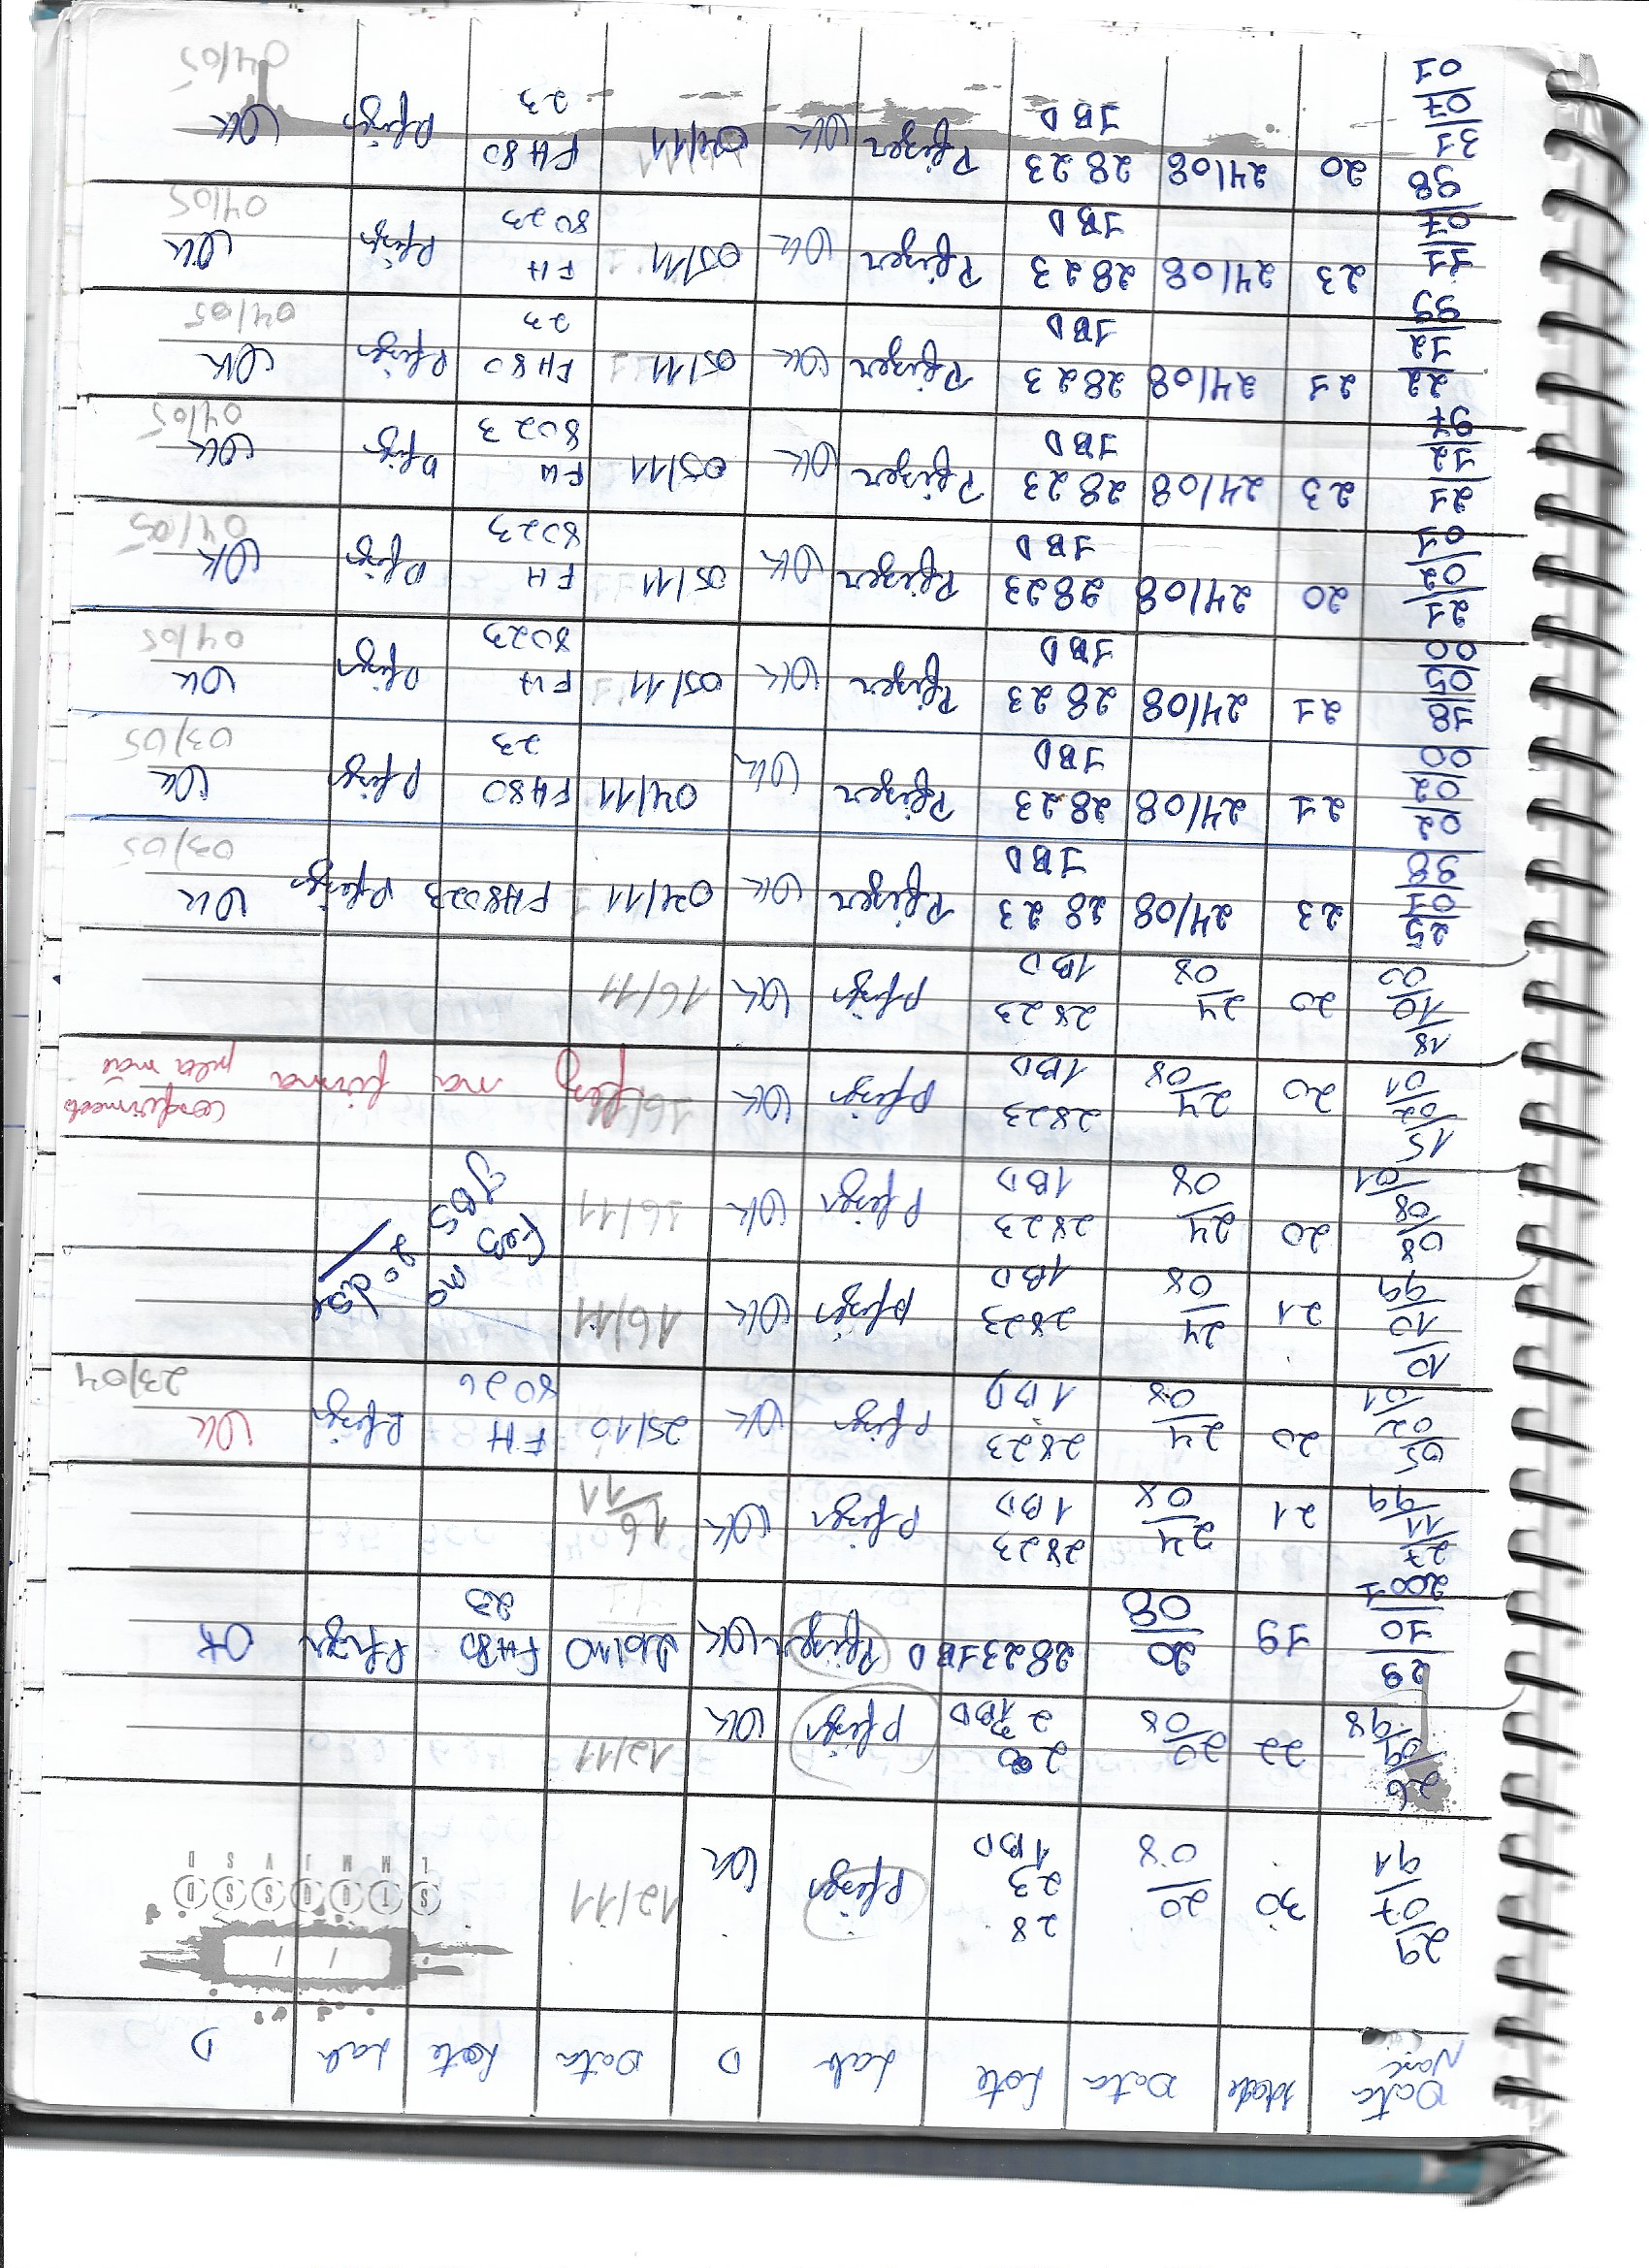 Data Nasc Idade Data Lote Lab D Data Lote Lab D
S T Q Q S S D
L M M J V S D
29/07/91 30 20/08 28 23 1BD Pfizer OK 12/11
26/09/98 22 20/08 1BD Pfizer OK 12/11
29/10/2001 19 20/08 28231BD Pfizer OK 26/10 FH80 23 Pfizer OK
27/11/99 21 24/08 2823 1BD Pfizer OK 16/11
05/02/01 20 24/08 2823 1BD Pfizer OK 25/10 FH 8026 Pfizer OK 23/04
10/10/99 21 24/08 2823 1BD Pfizer OK 16/11
08/08/01 20 24/08 2823 1BD Pfizer OK 16/11 Fez no 2º dose
15/02/01 20 24/08 2823 1BD Pfizer OK 16/11 fez na firma pela mãe
18/10/00 20 24/08 2823 1BD Pfizer OK 16/11
25/01/98 23 24/08 2823 1BD Pfizer OK 04/11 FH8023 Pfizer OK 03/05
02/02/00 21 24/08 2823 1BD Pfizer OK 04/11 FH80 23 Pfizer OK 03/05
18/05/00 21 24/08 2823 1BD Pfizer OK 05/11 FH 8023 Pfizer OK 04/05
21/02/01 20 24/08 2823 1BD Pfizer OK 05/11 FH 8023 Pfizer OK 04/05
21/12/97 23 24/08 2823 1BD Pfizer OK 05/11 FH 8023 Pfizer OK 04/05
22/12/99 21 24/08 2823 1BD Pfizer OK 05/11 FH80 23 Pfizer OK 04/05
11/07/98 23 24/08 2823 1BD Pfizer OK 05/11 FH 8023 Pfizer OK 04/05
31/07/01 20 24/08 2823 1BD Pfizer OK 04/11 FH80 23 Pfizer OK 04/05